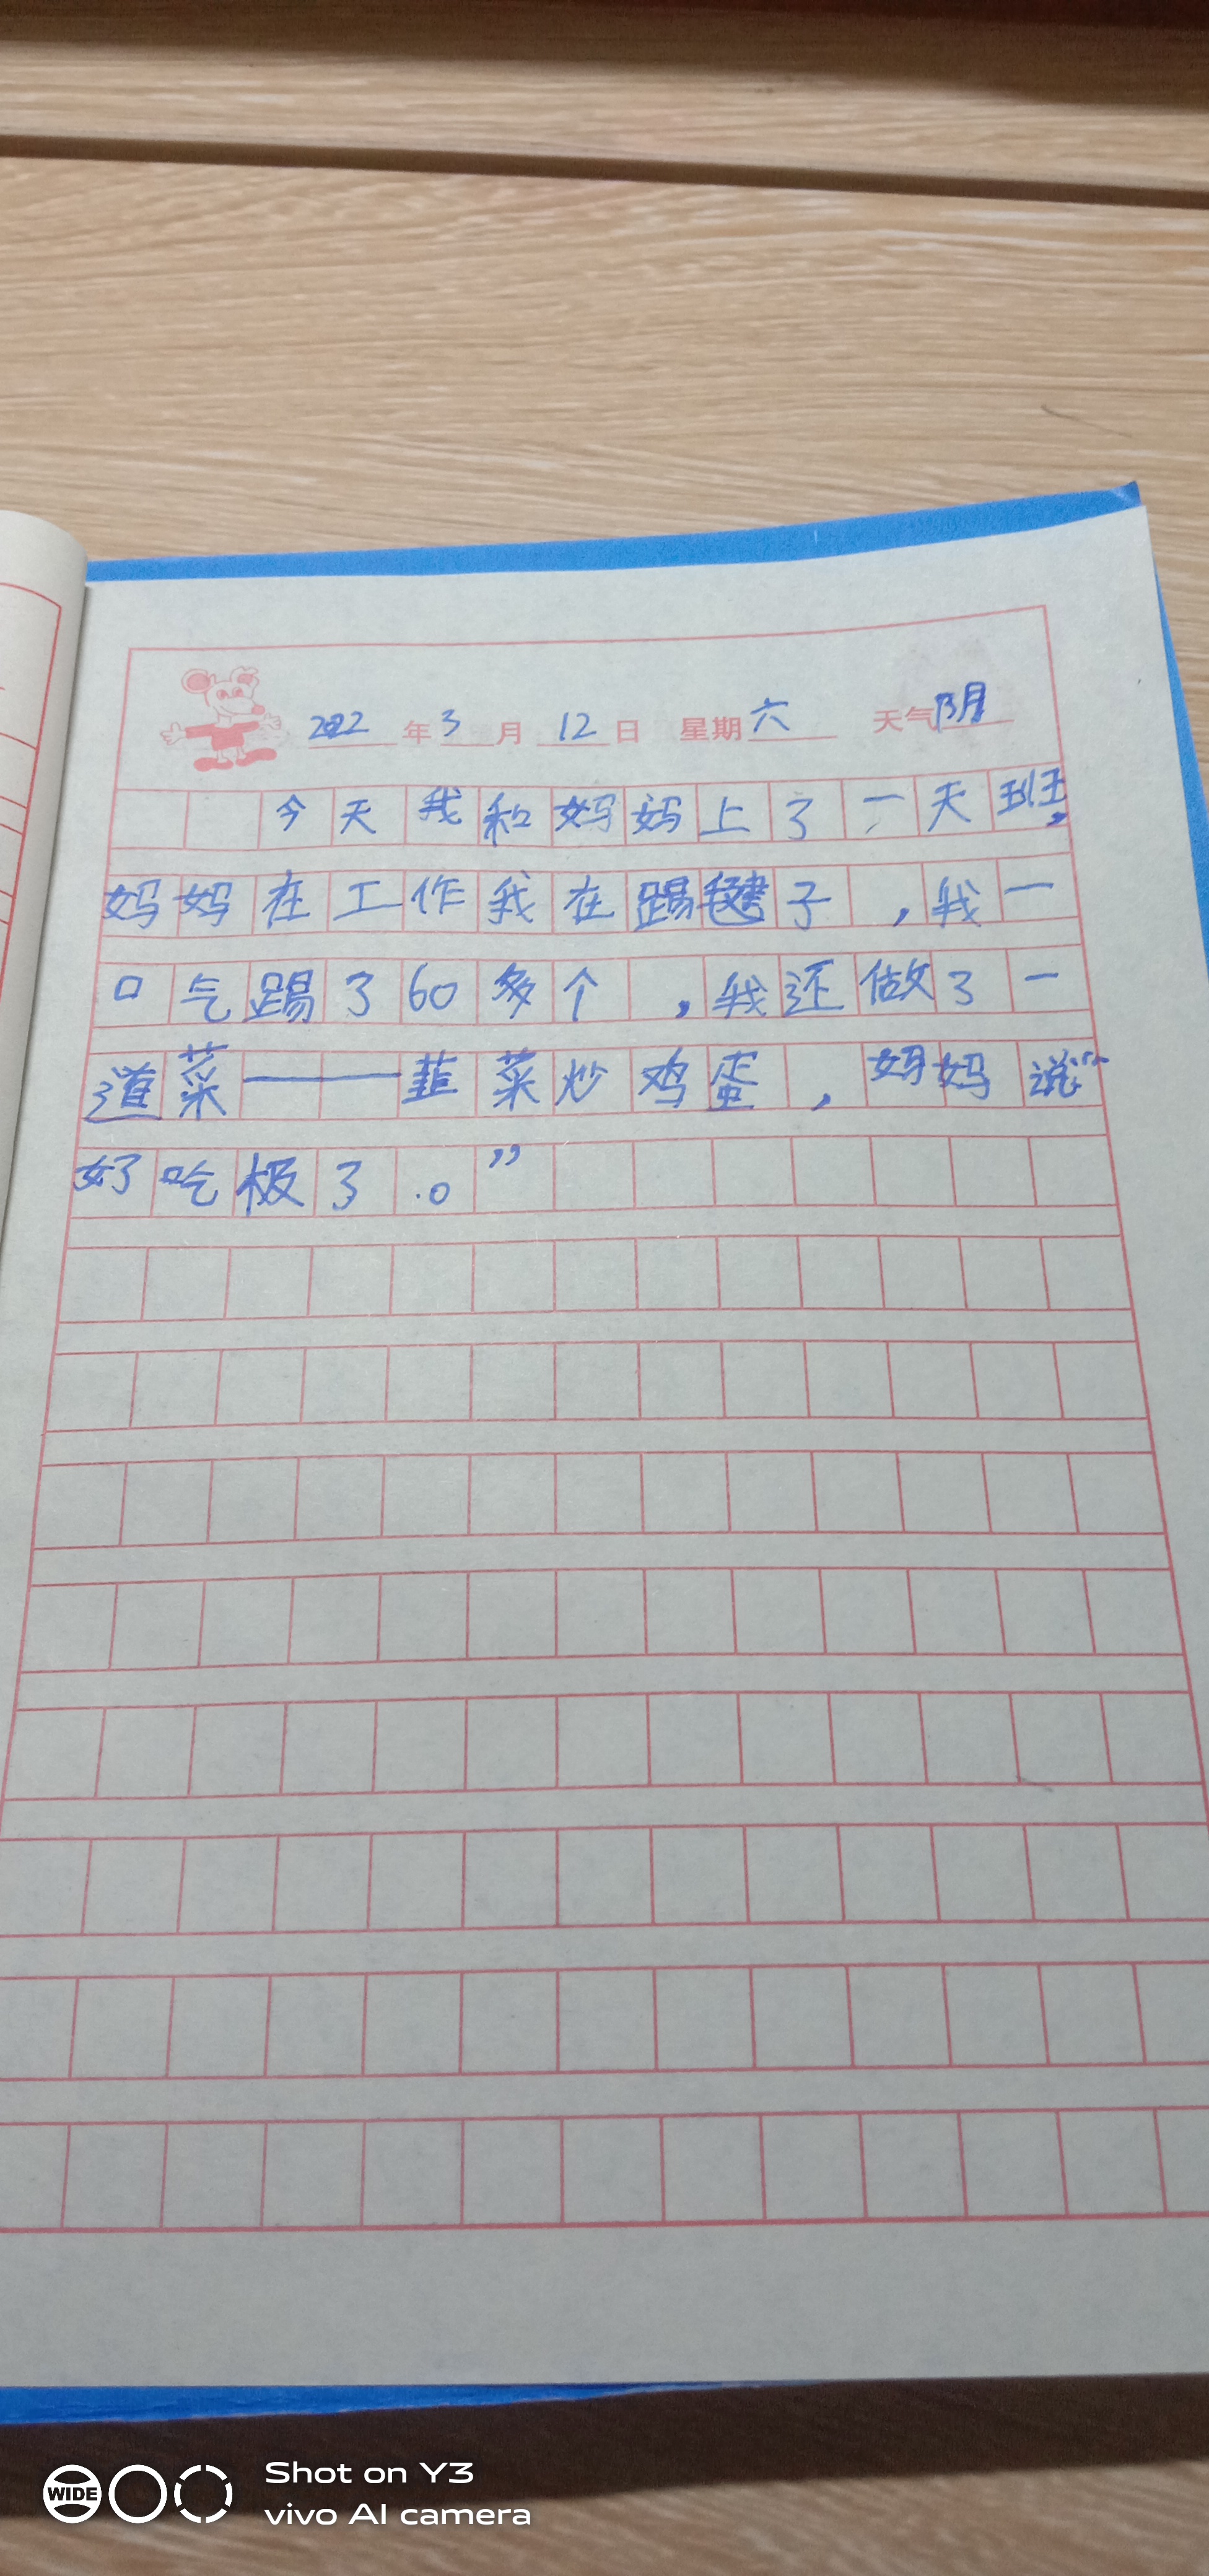 2022年3月12日 星期六 天气阴
今天我和妈妈上了一天班,
妈妈在工作我在踢毽子,我一
口气踢了60多个,我还做了一
道菜——韭菜炒鸡蛋,妈妈说“
好吃极了.。”
WIDE
Shot on Y3
vivo AI camera